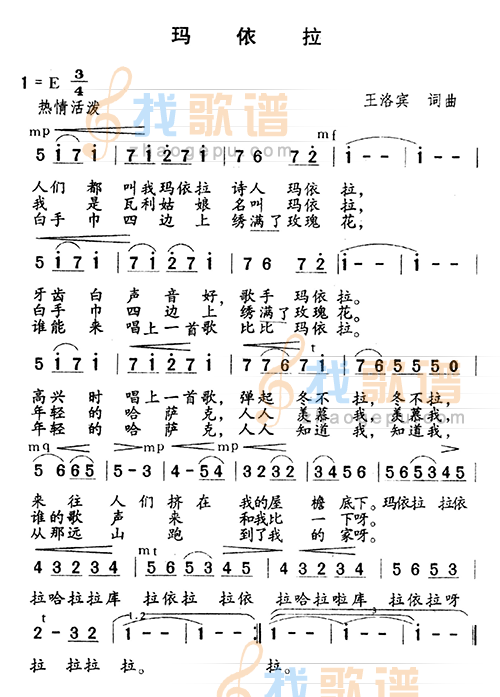 玛 依 拉
1 = E 3/4
热情活泼
王洛宾 词曲
找歌谱
zhaogepu.com
mp mf
5 i 7 i | 7 i 2 7 i | 7 6 7 2 | i - - | i - - |
人们 都 叫我玛依拉 诗人 玛依 拉,
我 是 瓦利姑 娘 名叫 玛依 拉,
白手 巾 四边 上 绣满了玫瑰 花,
5 i 7 i | 7 i 2 7 i | 7 6 7 2 | i - - | i - - |
牙齿 白 声音 好, 歌手 玛依 拉。
白手 巾 四边 上 绣满了玫瑰 花,
谁能 来 唱上一首歌 比比 玛依 拉。
t
5 i 7 i | 7 i 2 7 i | 7 7 6 7 i | 7 6 5 5 5 0
高兴 时 唱上一首歌, 弹起 冬不 拉, 冬不拉,
年轻 的 哈 萨 克, 人人 羡慕 我, 羡慕我,
年轻 的 哈 萨 克, 人人 知道 我, 知道我,
找歌谱
zhaogepu.com
mq mp mp
5 6 6 5 | 5 - 3 | 4 - 5 4 | 3 2 3 2 | 1 0 5 5 | 5 6 5 3 4 5
来 往 人 们 挤 在 我的屋 檐 底下。玛依拉 拉依
谁的 歌 声 来 和我比 一 下呀。
从那 远 山 跑 到了我 的 家呀。
mt
4 3 2 3 4 | 5 6 5 3 4 5 | 4 3 2 3 4 | 5 6 5 3 5
拉哈拉拉库 拉依拉 拉依 拉哈拉啦库 拉依拉呀
t 1.2 3
2 - 3 2 | 1 - - | 1 - - :| 1 - - | 1 - - ||
拉 拉拉 拉。 拉。
找歌谱